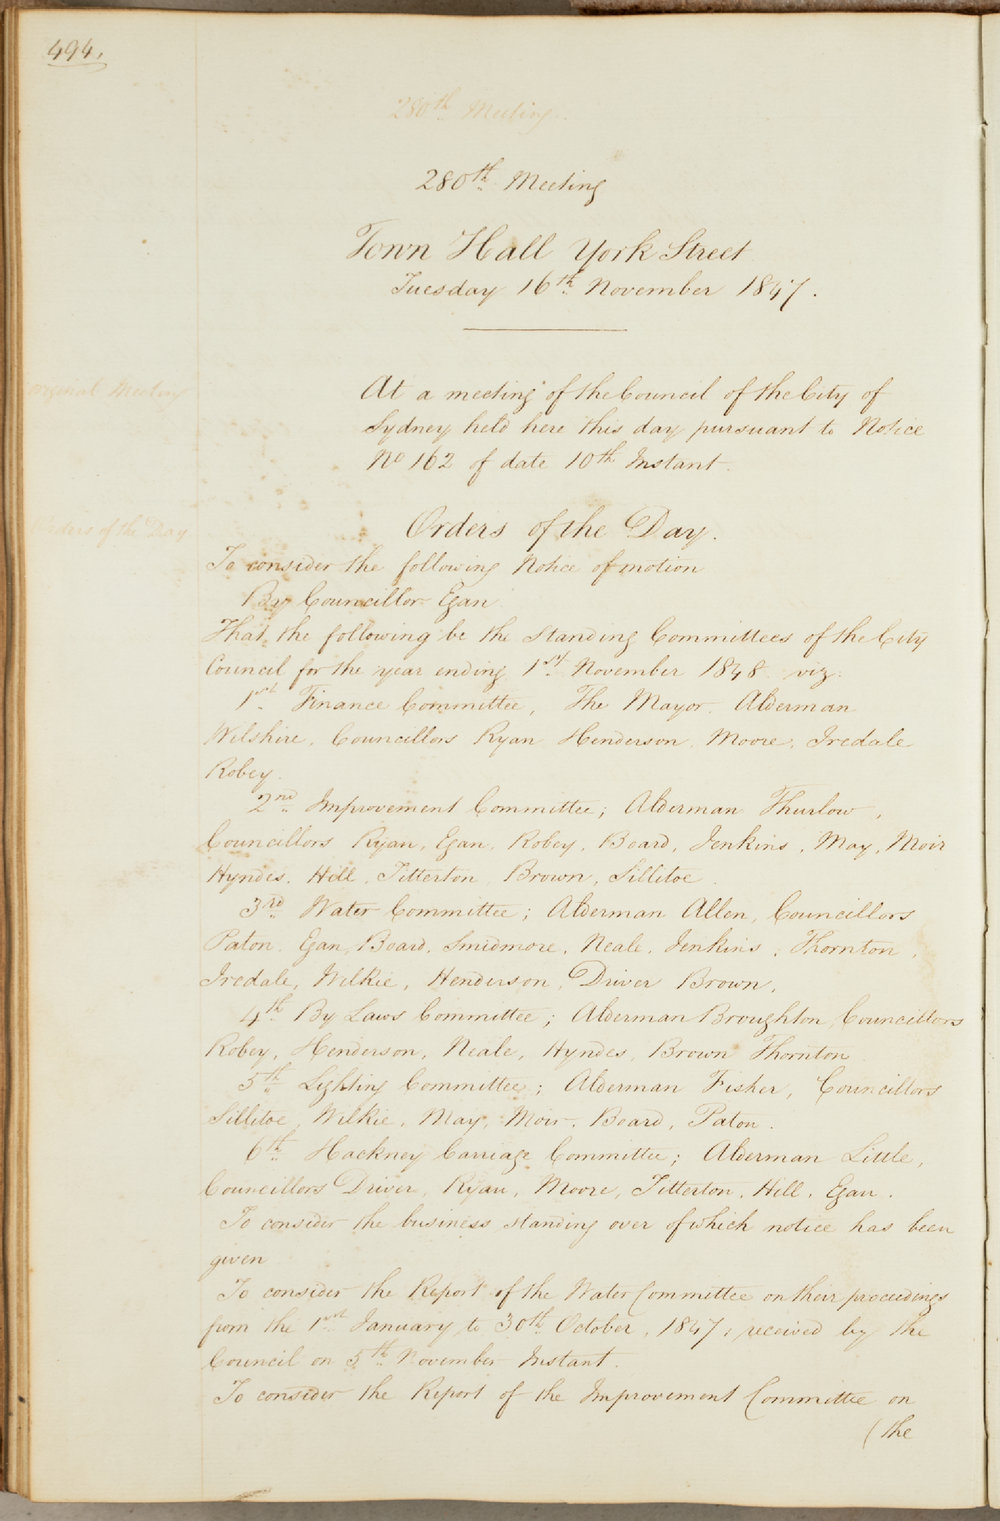 494.
280th Meeting.
280th Meeting
Town Hall York Street
Tuesday 16th November 1847.
original Meeting
At a meeting of the Council of the City of
Sydney held here this day pursuant to Notice
No 162 of date 10th Instant.
Orders of the Day
Orders of the Day.
To consider the following Notice of motion
By Councillor Egan
That the following be the Standing Committees of the City
Council for the year ending 1st November 1848 viz:
1st Finance Committee, The Mayor. Alderman
Wilshire, Councillors Ryan Henderson, Moore, Iredale
Robey.
2nd Improvement Committee; Alderman Thurlow,
Councillors Ryan, Egan, Robey, Board, Jenkins, May, Moir
Hyndes, Hill, Titterton, Brown, Sillitoe.
3rd Water Committee; Alderman Allen, Councillors
Paton, Egan, Board, Smidmore, Neale, Jenkins, Thornton,
Iredale, Wilkie, Henderson, Driver Brown,
4th By Laws Committee; Alderman Broughton, Councillors
Robey, Henderson, Neale, Hyndes, Brown Thornton
5th Lighting Committee; Alderman Fisher, Councillors
Sillitoe, Wilkie, May, Moir, Board, Paton.
6th Hackney Carriage Committee; Alderman Little,
Councillors Driver, Ryan, Moore, Titterton, Hill, Egan.
To consider the business standing over of which notice has been
given
To consider the Report of the Water Committee on their proceedings
from the 1st January to 30th October, 1847, received by the
Council on 5th November Instant.
To consider the Report of the Improvement Committee on
(the